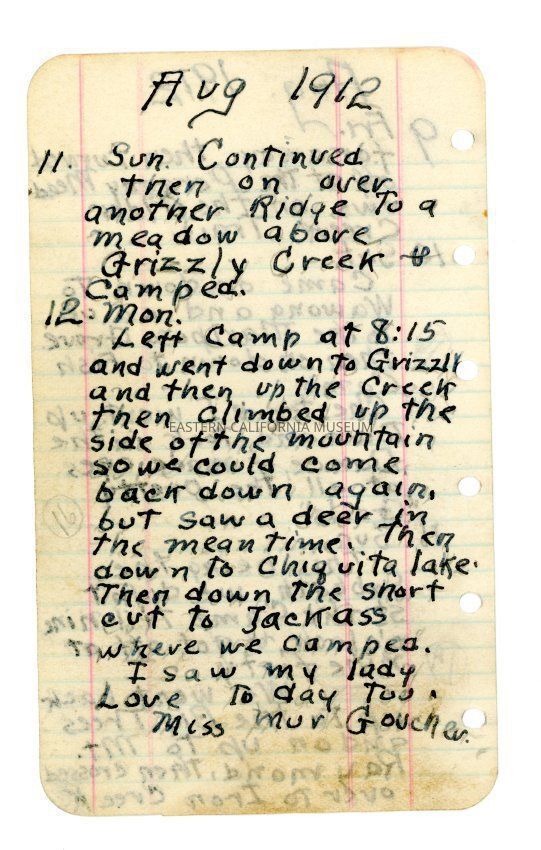 Aug 1912
11. Sun. Continued
then on over
another Ridge To a
meadow above
Grizzly Creek &
Camped.
12. Mon.
Left Camp at 8:15
and went down to Grizzly
and then up the Creek
then Climbed up the
side of the mountain
EASTERN CALIFORNIA MUSEUM
so we could come
back down again,
but saw a deer in
the mean time. Then
down to Chiquita lake.
Then down the short
cut to Jackass
where we camped.
I saw my lady
Love To day Too.
Miss Mur Goucher.